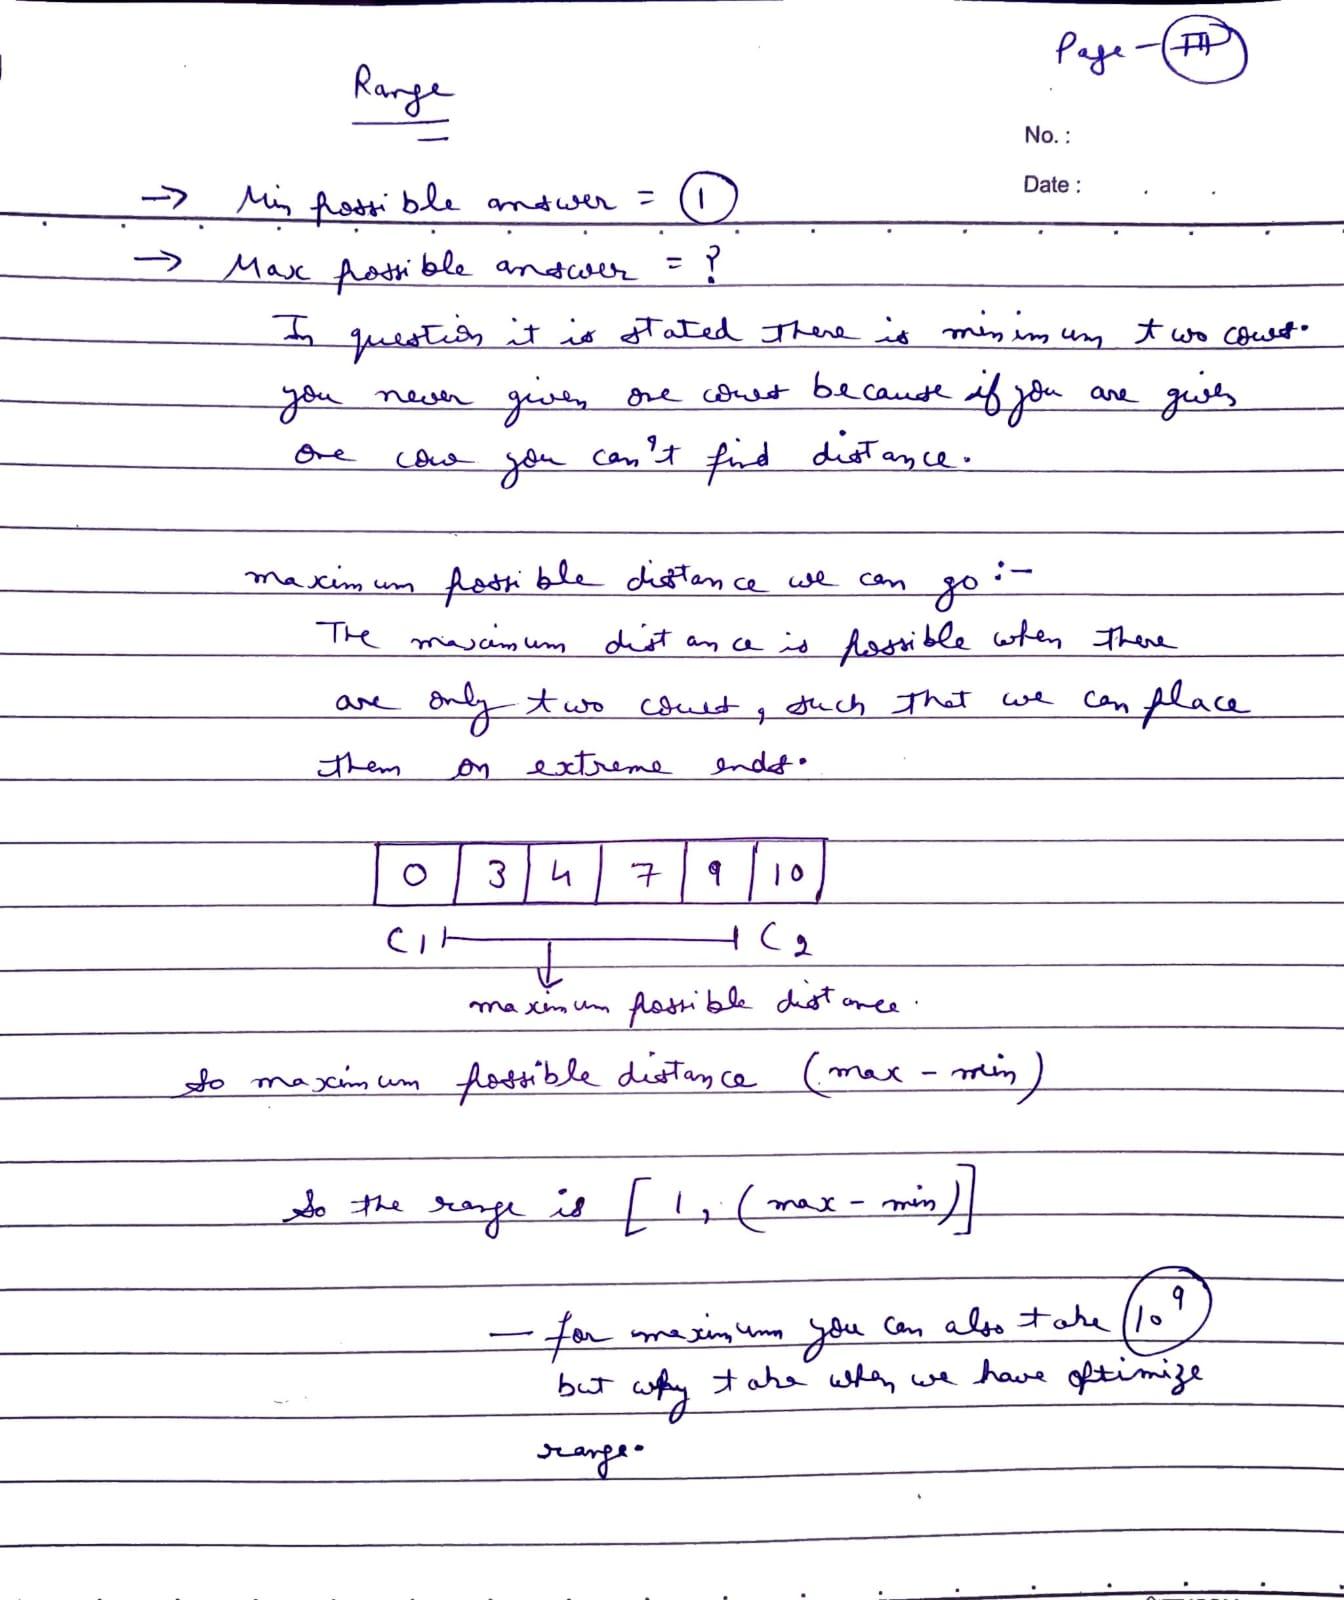 Page - III
Range
No. :
Date :
→ Min possible answer = 1
→ Max possible answer = ?
In question it is stated there is minimum two cows.
you never given one cows because if you are given
one cow you can't find distance.
maximum possible distance we can go :-
The maximum distance is possible when there
are only two cows, such that we can place
them on extreme ends.
0 3 4 7 9 10
C1 C2
maximum possible distance.
So maximum possible distance (max - min)
So the range is [1, (max - min)]
- for maximum you can also take 10^9
but why take when we have optimize
range.